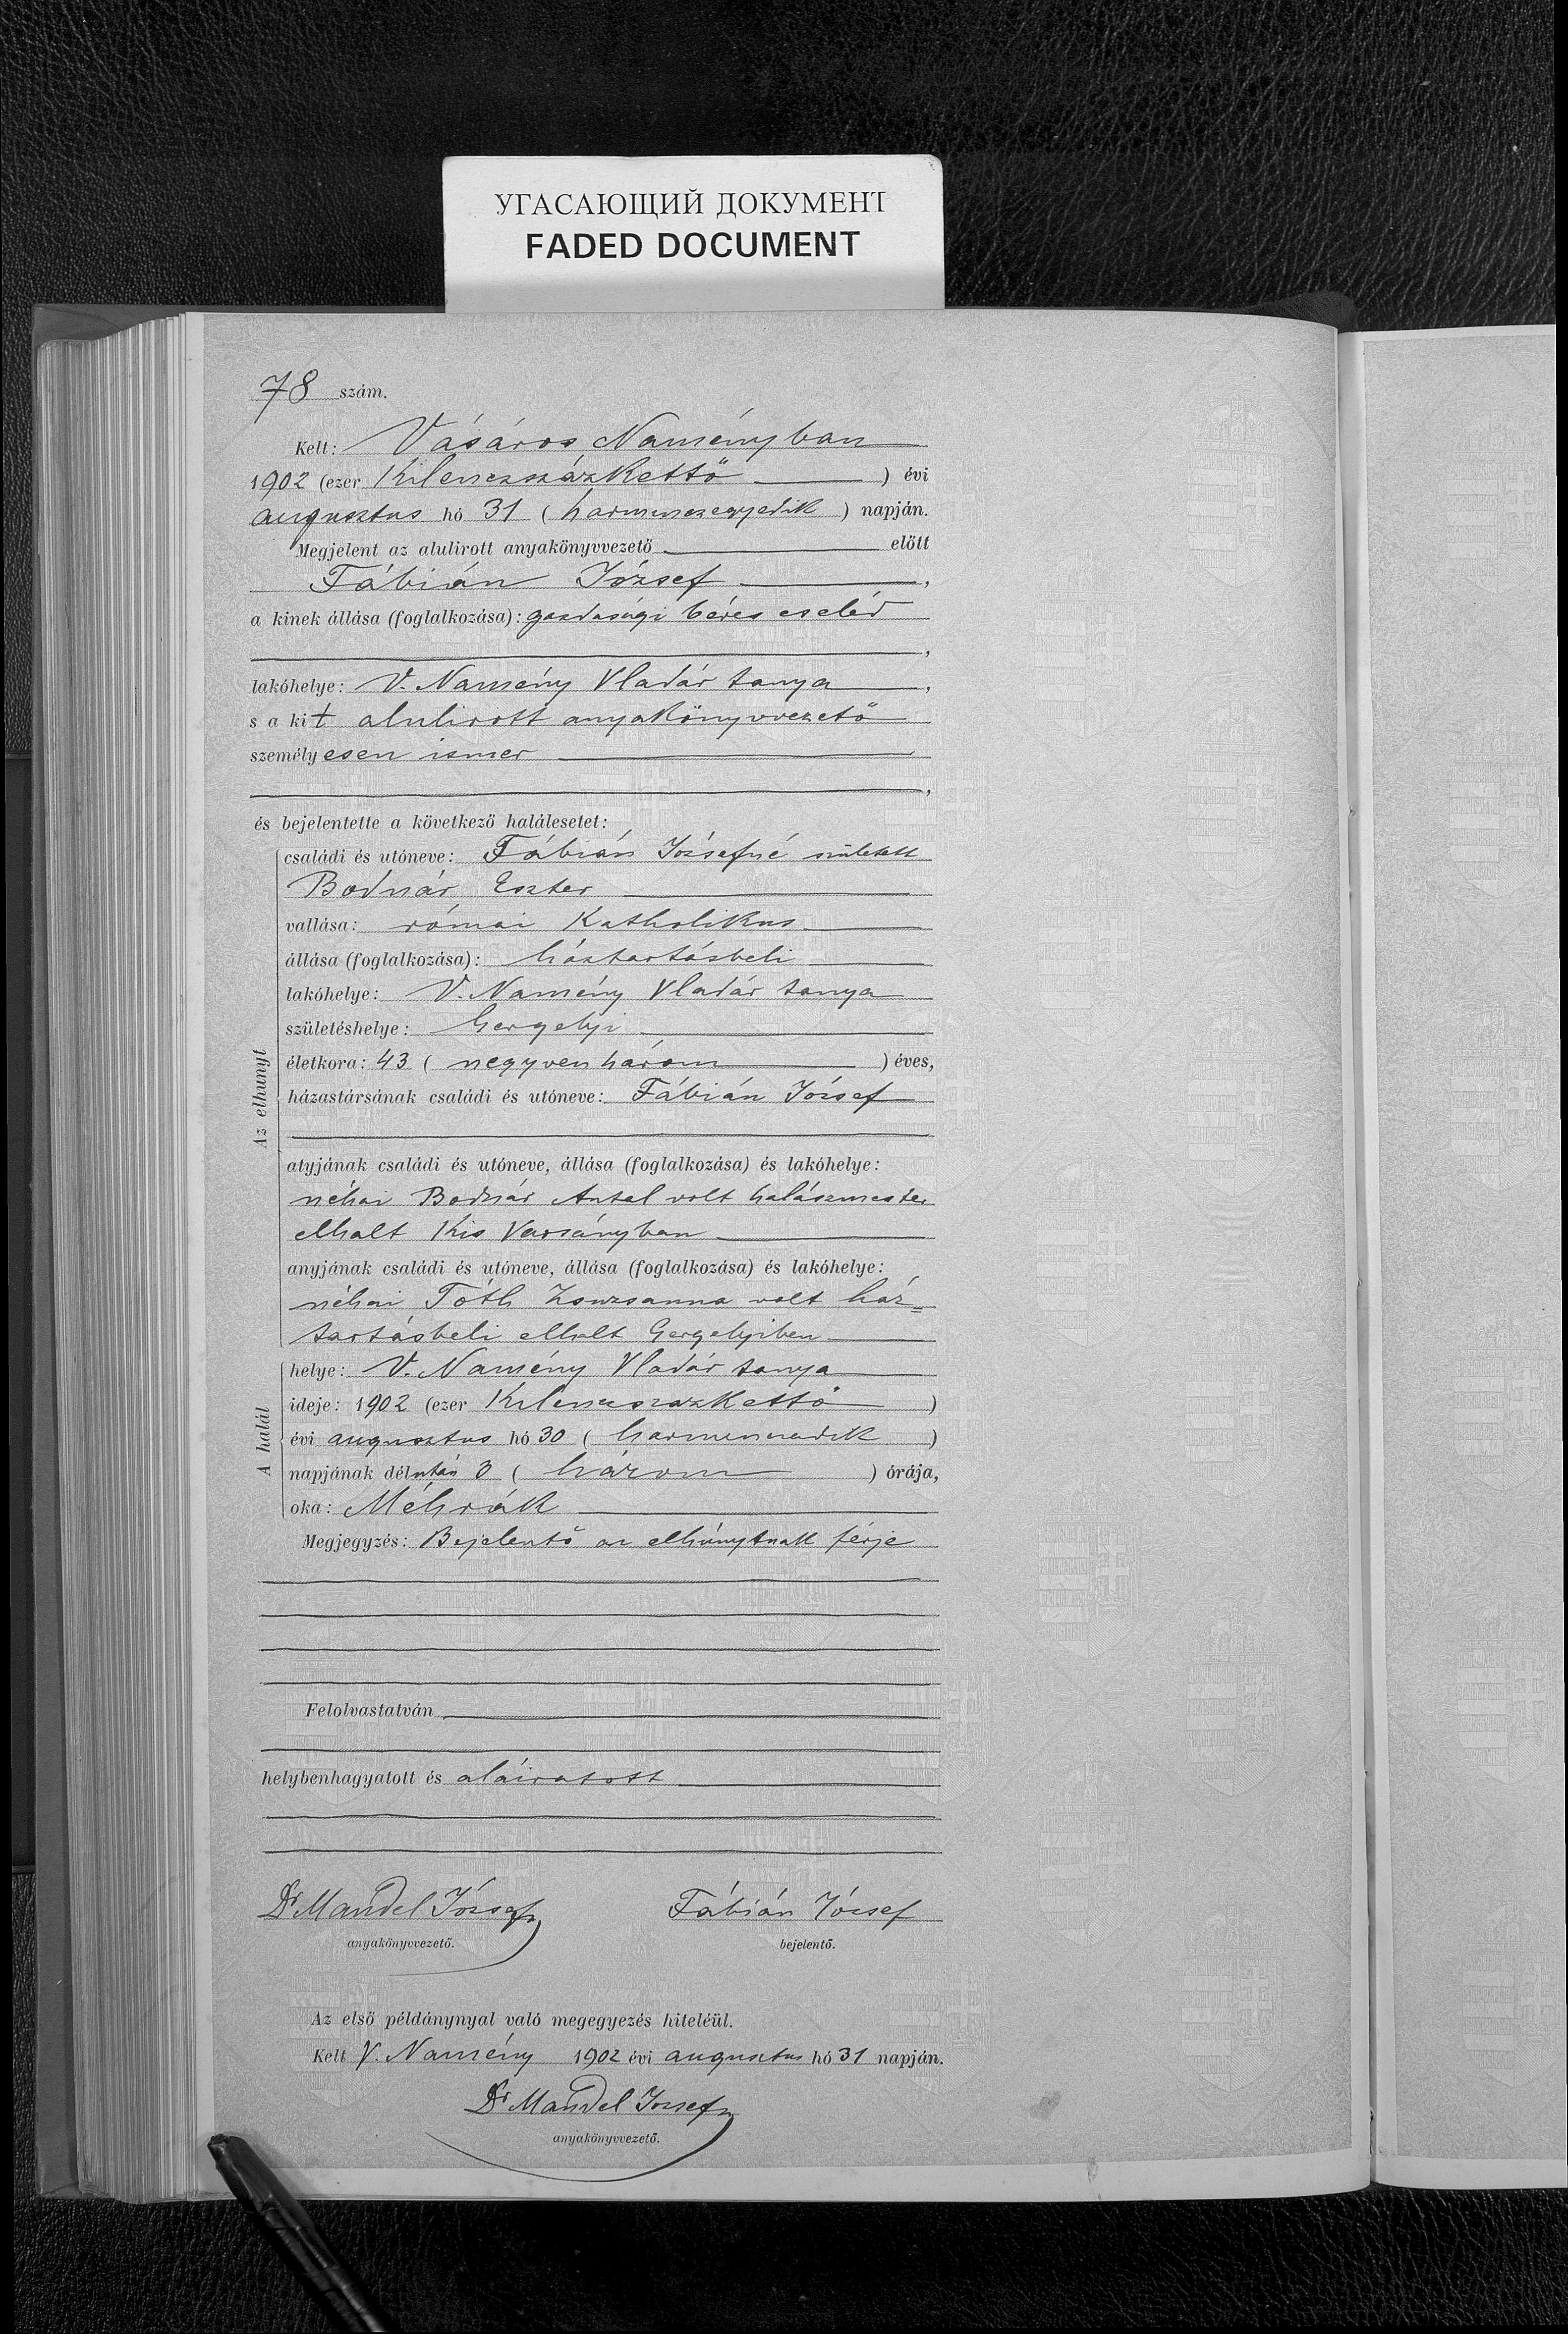 УГАСАЮЩИЙ ДОКУМЕНТ
FADED DOCUMENT
78 szám.
Kelt: Vásáros Naményban
1902 (ezer Kilenczszázkettő ) évi
augusztus hó 31 ( harminczegyedik ) napján.
Megjelent az alulirott anyakönyvvezető előtt
Fábián József ,
a kinek állása (foglalkozása): gazdasági béres cseléd
,
lakóhelye: V. Namény Vladár tanya ,
s a kit alulirott anyakönyvvezető
személyesen ismer
,
és bejelentette a következő halálesetet:
Az elhunyt
családi és utóneve: Fábián Józsefné született
Bodnár Eszter
vallása: római Katholikus
állása (foglalkozása): háztartásbeli
lakóhelye: V. Namény Vladár tanya
születéshelye: Gergelyi
életkora: 43 ( negyvenhárom ) éves,
házastársának családi és utóneve: Fábián József
atyjának családi és utóneve, állása (foglalkozása) és lakóhelye:
néhai Bodnár Antal volt halászmester
elhalt Kis Varsányban
anyjának családi és utóneve, állása (foglalkozása) és lakóhelye:
néhai Tóth Zsuzsanna volt ház=
tartásbeli elhalt Gergelyiben
A halál
helye: V. Namény Vladár tanya
ideje: 1902 (ezer Kilenczszázkettő )
évi augusztus hó 30 ( harminczadik )
napjának délután 3 ( három ) órája,
oka: Méhrák
Megjegyzés: Bejelentő az elhúnytnak férje
Felolvastatván
helybenhagyatott és aláiratott
Dr Mandel József Fábián József
anyakönyvvezető. bejelentő.
Az első példánynyal való megegyezés hiteléül.
Kelt V. Namény 1902 évi augusztus hó 31 napján.
Dr Mandel József
anyakönyvvezető.